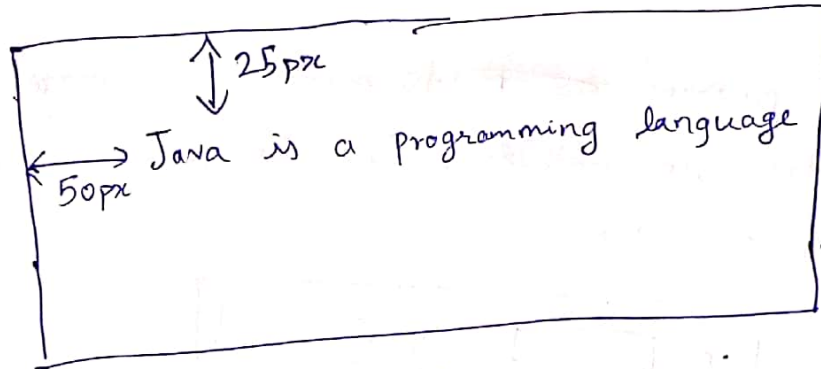 25px
Java is a programming language
50px